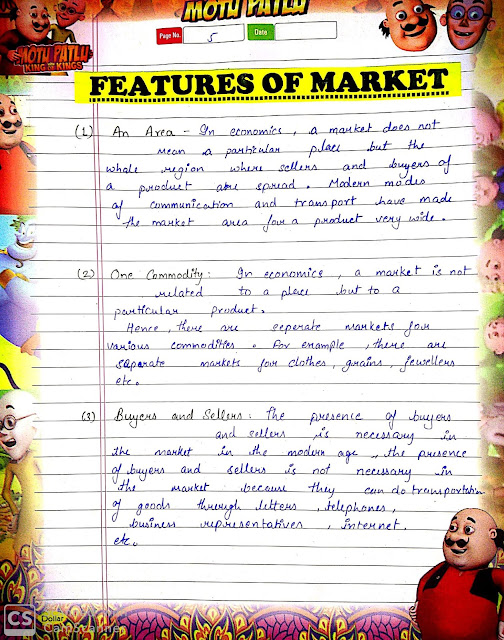 MOTU PATLU
MOTU PATLU
KING OF KINGS
Page No. 5 Date
FEATURES OF MARKET
(1) An Area - In economics, a market does not
mean a particular place but the
whole region where sellers and buyers of
a product are spread. Modern modes
of communication and transport have made
the market area for a product very wide.
(2) One Commodity: In economics, a market is not
related to a place but to a
particular product.
Hence, there are seperate markets for
various commodities. For example, there are
separate markets for clothes, grains, jewellers
etc.
(3) Buyers and Sellers: The presence of buyers
and sellers is necessary in
the market in the modern age, the presence
of buyers and sellers is not necessary in
the market because they can do transportation
of goods through letters, telephones,
business representatives, internet.
etc.
CS Dollar